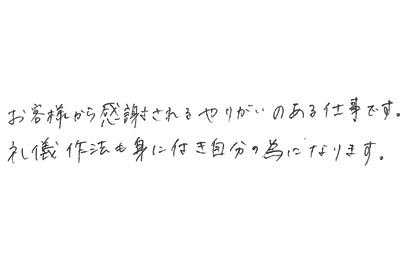 お客様から感謝されるやりがいのある仕事です。
礼儀作法も身に付き自分の為になります。